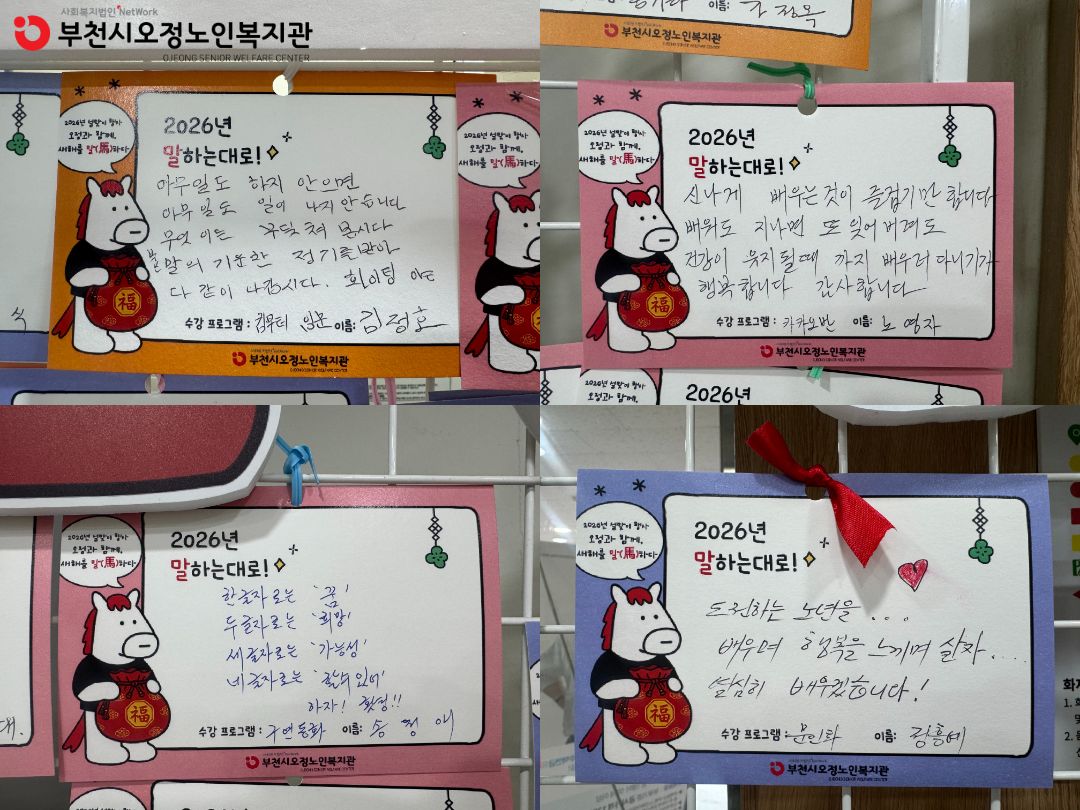 사회복지법인 NetWork
부천시오정노인복지관
OJEONG SENIOR WELFARE CENTER
2026년 설맞이 행사
오정과 함께,
새해를 말(馬)하다~
2026년
말하는대로!
아무일도 하지 안으면
아무일도 일어 나지 안습니다
무엇이든 부딪쳐 봅시다
붉은 말의 기운한 정기를받아
다 같이 나갑시다. 화이팅
福
수강 프로그램 : 컴퓨터 입문 이름: 김정호
부천시오정노인복지관
OJEONG SENIOR WELFARE CENTER
2026년 설맞이 행사
오정과 함께,
새해를 말(馬)하다~
이름:
부천시오정노인복지관
2026년 설맞이 행사
오정과 함께,
새해를 말(馬)하다~
2026년
말하는대로!
신나게 배우는것이 즐겁기만 합니다
배워도 지나면 또 잊어버려도
건강이 유지될때 까지 배우러 다니기가
행복합니다 감사합니다
福
수강 프로그램 : 이름: 노영자
부천시오정노인복지관
2026년 설맞이 행사
오정과 함께,
2026년
2026년 설맞이 행사
오정과 함께,
새해를 말(馬)하다~
2026년
말하는대로!
한글자로는 '꿈'
두글자로는 '희망'
세글자로는 '가능성'
네글자로는 '할수있어'
하자! 홧팅!!
福
수강 프로그램 : 구연동화 이름: 송정애
부천시오정노인복지관
2026년 설맞이 행사
2026년 설맞이 행사
오정과 함께,
새해를 말(馬)하다~
2026년
말하는대로!
도전하는 노년을 ...
배우며 행복을 느끼며 살자....
열심히 배우겠습니다!
福
수강 프로그램 : 이름:
부천시오정노인복지관